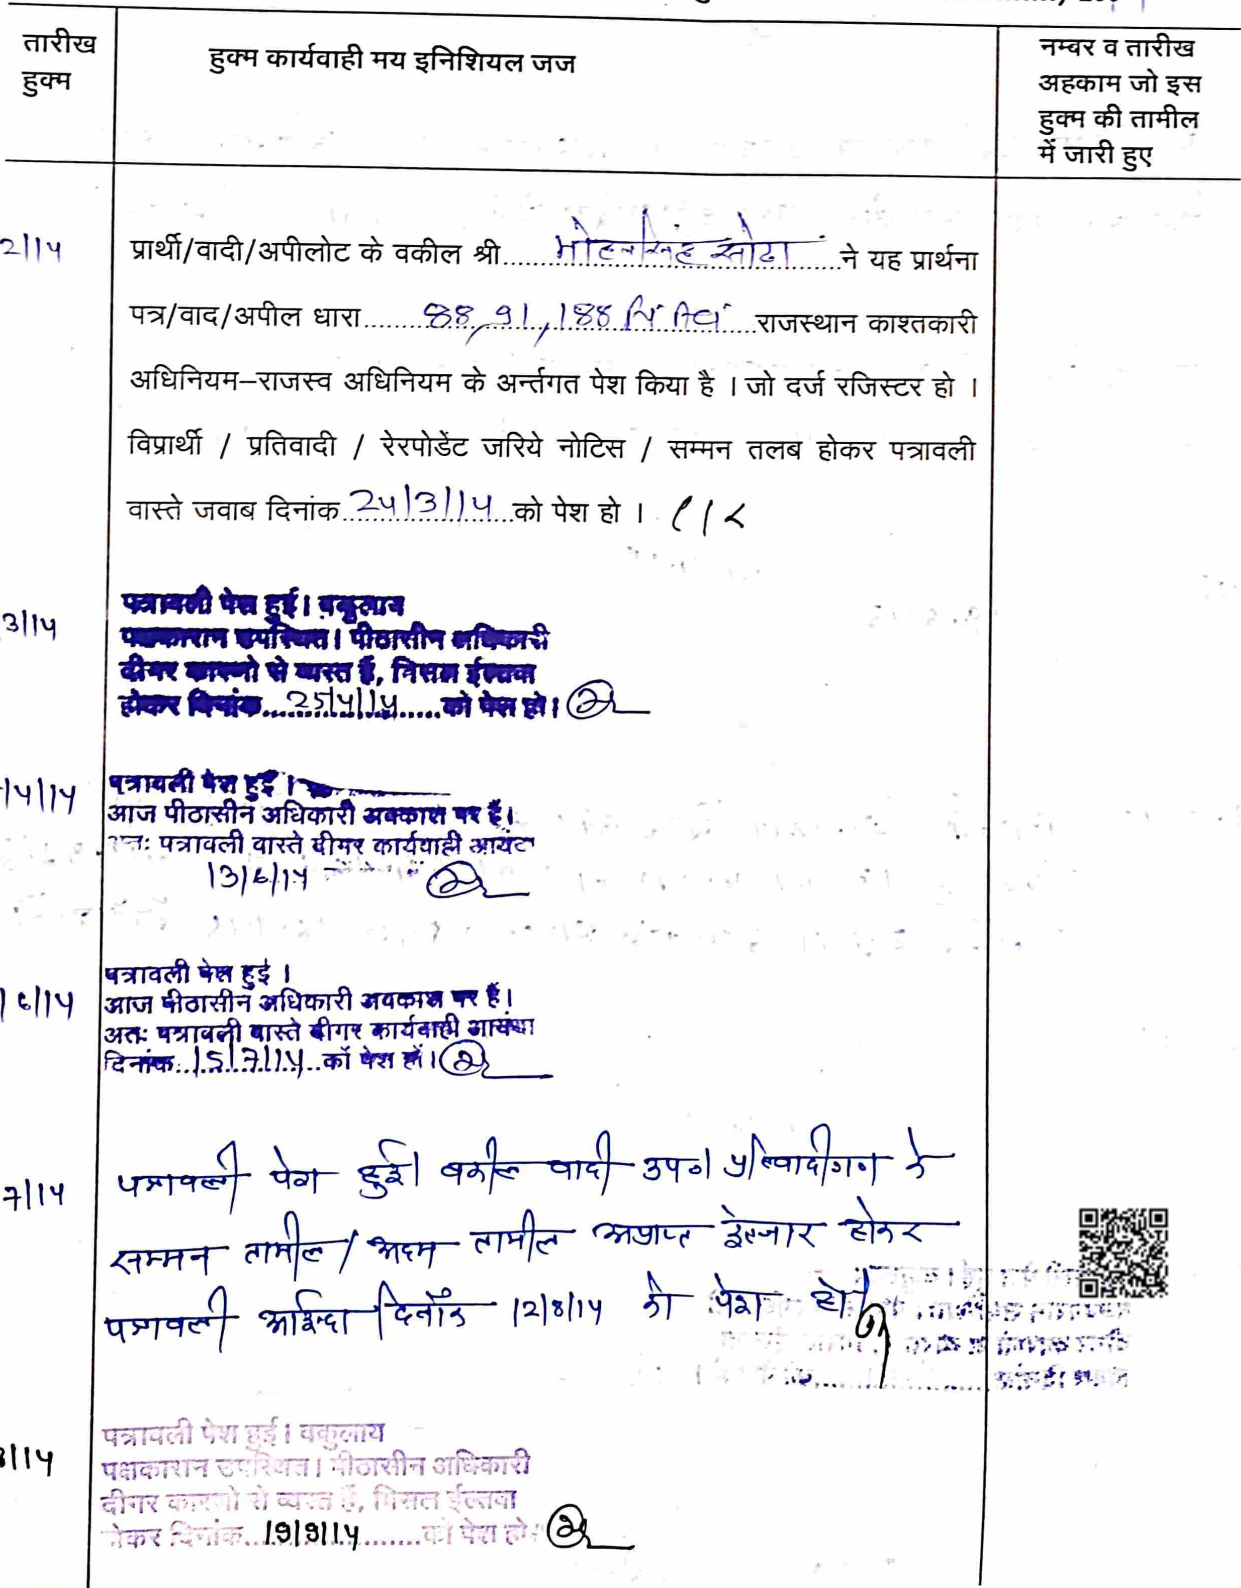 तारीख
हुक्म
हुक्म कार्यवाही मय इनिशियल जज
नम्बर व तारीख
अहकाम जो इस
हुक्म की तामील
में जारी हुए
2/14
प्रार्थी/वादी/अपीलोट के वकील श्री....मोहनसिंह सोढा....ने यह प्रार्थना
पत्र/वाद/अपील धारा....88,91,188....राजस्थान काश्तकारी
अधिनियम–राजस्व अधिनियम के अर्न्तगत पेश किया है । जो दर्ज रजिस्टर हो ।
विप्रार्थी / प्रतिवादी / रेरपोडेंट जरिये नोटिस / सम्मन तलब होकर पत्रावली
वास्ते जवाब दिनांक..24/3/14..को पेश हो ।
3/14
पत्रावली पेश हुई। वकुलाय
पक्षकारान उपस्थित। पीठासीन अधिकारी
दीगर कारणो से व्यस्त हैं, मिसल ईल्तवा
होकर दिनांक...25/4/14.....को पेश हो।
/4/14
पत्रावली पेश हुई ।
आज पीठासीन अधिकारी अवकाश पर हैं।
अतः पत्रावली वास्ते दीगर कार्यवाही
13/6/14
/6/14
पत्रावली पेश हुई ।
आज पीठासीन अधिकारी अवकाश पर हैं।
अतः पत्रावली वास्ते दीगर कार्यवाही आयंदा
दिनांक..15/7/14..कों पेश हों।
7/14
पत्रावली पेश हुई। वकील वादी उप० प्रतिवादीगण के
सम्मन तामील / अदम तामील अप्राप्त इंतजार होकर
पत्रावली आईन्दा दिनाँक 12/8/14 को पेश हो।
8/14
पत्रावली पेश हुई। वकुलाय
पक्षकारान उपस्थित। पीठासीन अधिकारी
दीगर कारणो से व्यस्त हैं, मिसल ईल्तवा
होकर दिनांक..19/9/14......को पेश हो।